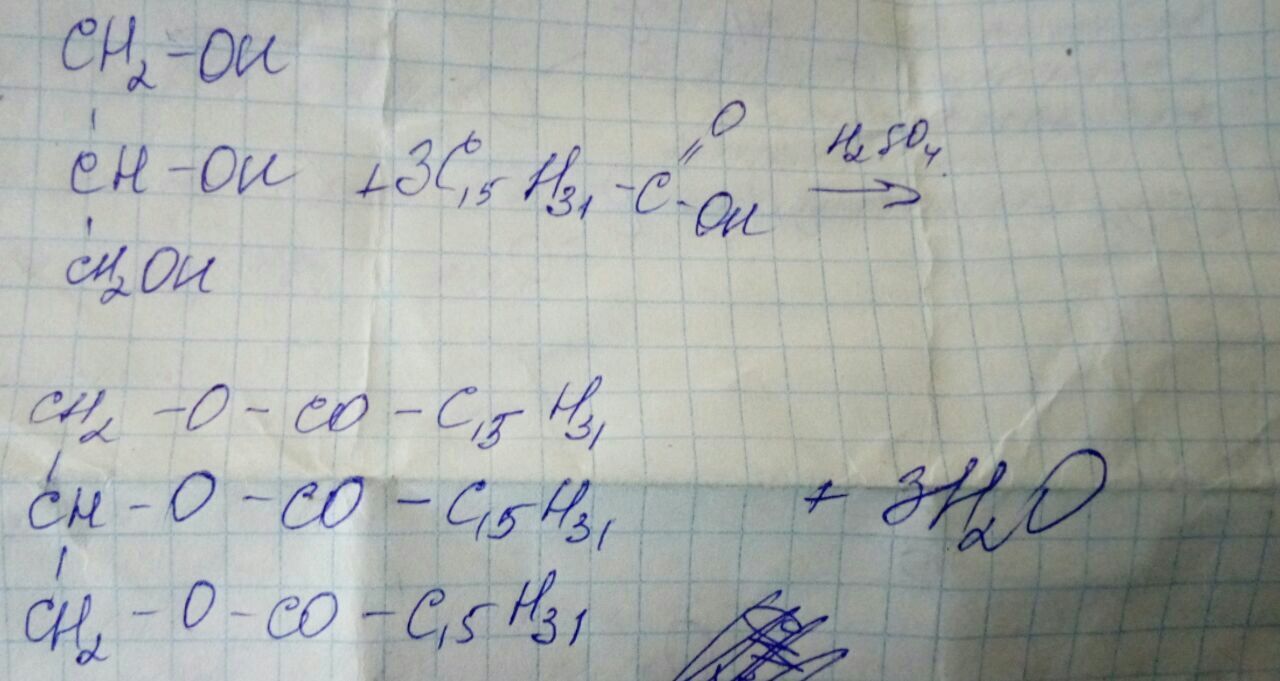 CH₂-OH
CH-OH +3C₁₅H₃₁-C=O-OH H₂SO₄ →
CH₂OH
CH₂-O-CO-C₁₅H₃₁
CH-O-CO-C₁₅H₃₁ + 3H₂O
CH₂-O-CO-C₁₅H₃₁